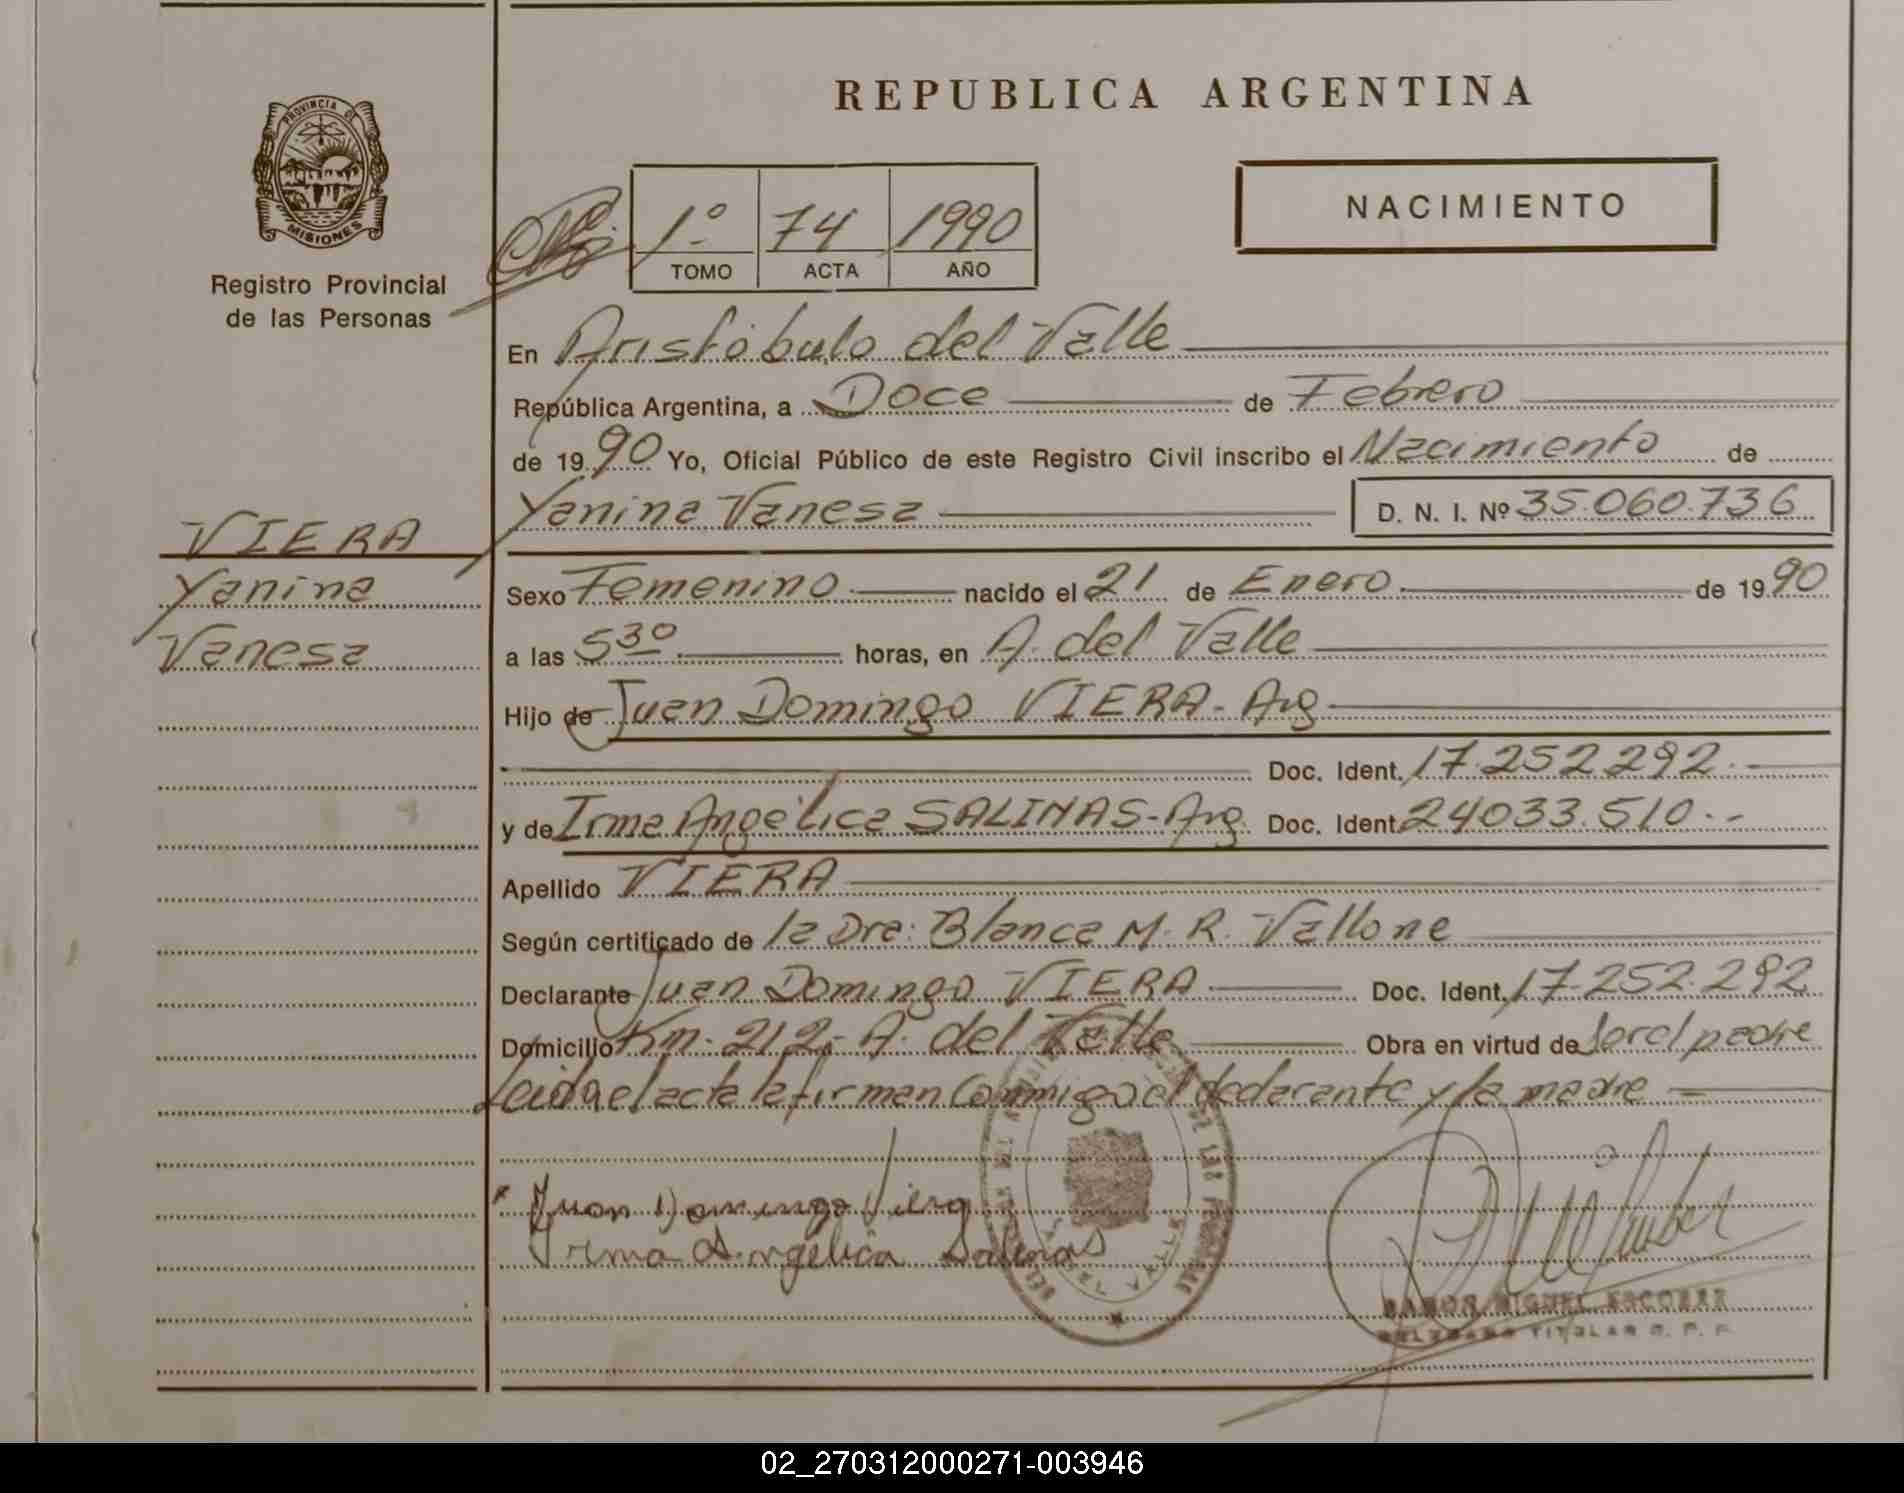 REPUBLICA ARGENTINA
PROVINCIA DE
MISIONES
Registro Provincial
de las Personas
1º 74 1990
TOMO ACTA AÑO
NACIMIENTO
En Aristóbulo del Valle
República Argentina, a Doce de Febrero
de 1990 Yo, Oficial Público de este Registro Civil inscribo el Nacimiento de
Yanina Vanesa D. N. I. Nº 35.060.736
VIERA
Yanina
Vanesa
Sexo Femenino nacido el 21 de Enero de 1990
a las 5 30 horas, en A. del Valle
Hijo de Juan Domingo VIERA - Arg
Doc. Ident. 17.252.292.-
y de Irma Angélica SALINAS - Arg. Doc. Ident. 24033.510.-
Apellido VIERA
Según certificado de la Dra: Blanca M. R. Vallone
Declarante Juan Domingo VIERA Doc. Ident. 17.252.292
Domicilio Km. 212,- A. del Valle Obra en virtud de Ser el padre
Leida el acta la firman Conmigo el declarante y la madre
Juan Domingo Viera
Irma Angélica Salinas
DEL VALLE
RAMON MIGUEL ESCOBAR
DELEGADO TITULAR R. P. P.
02_270312000271-003946